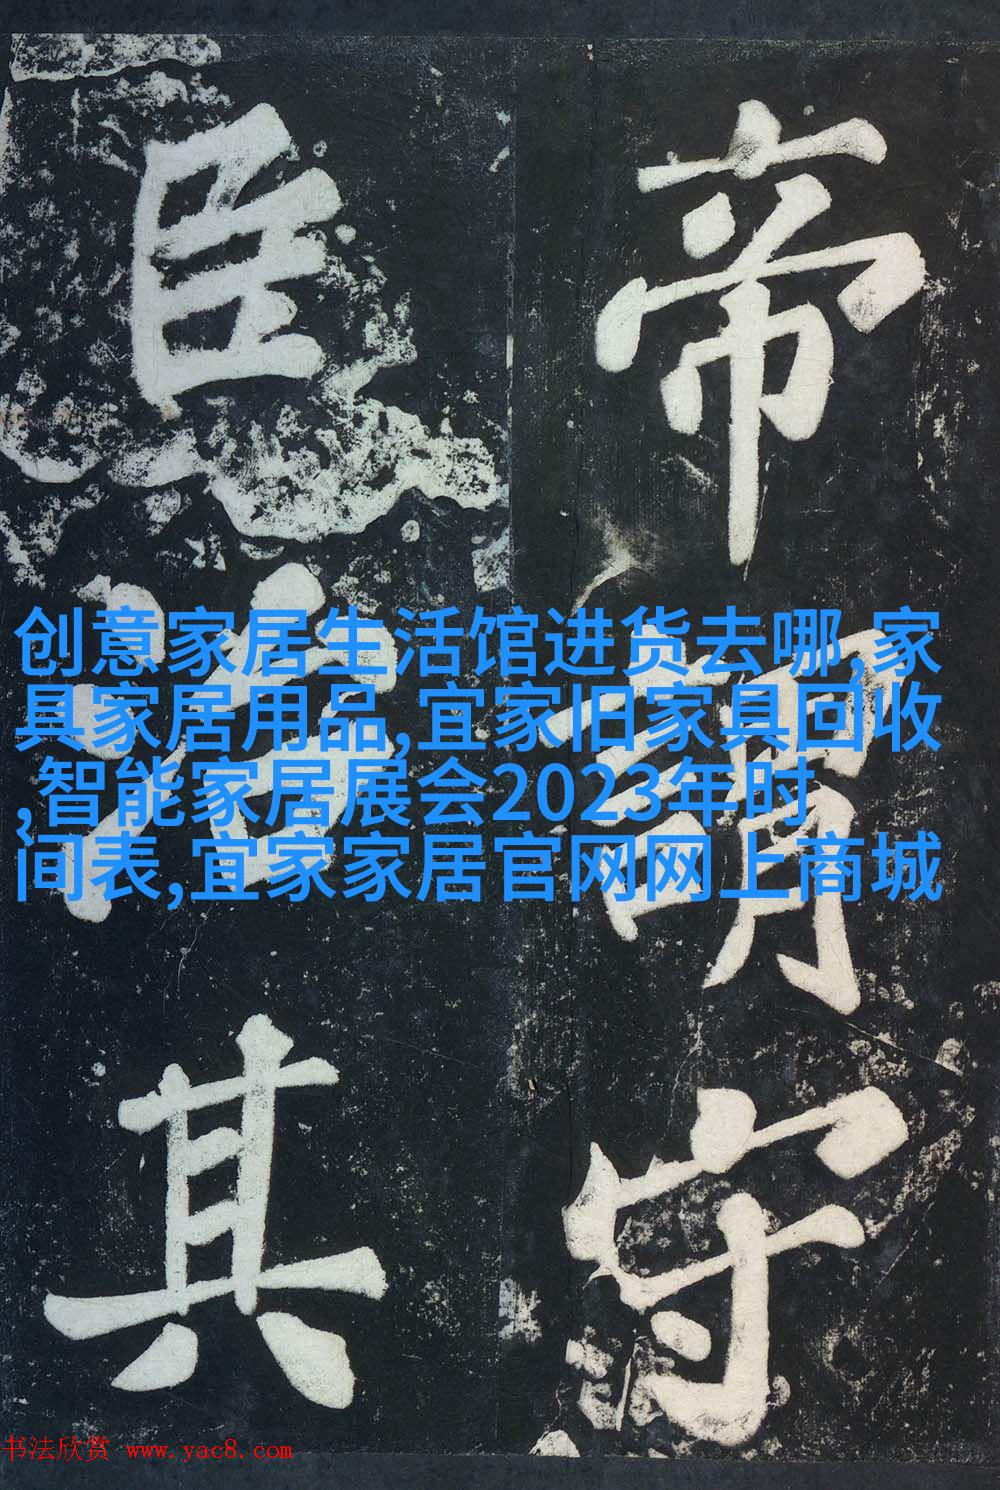 帝謂守
臣
其
创意家居生活馆进货去哪,家
具家居用品,宜家旧家具回收
,智能家居展会2023年时
间表,宜家家居官网网上商城
书法欣赏 www.yac8.com